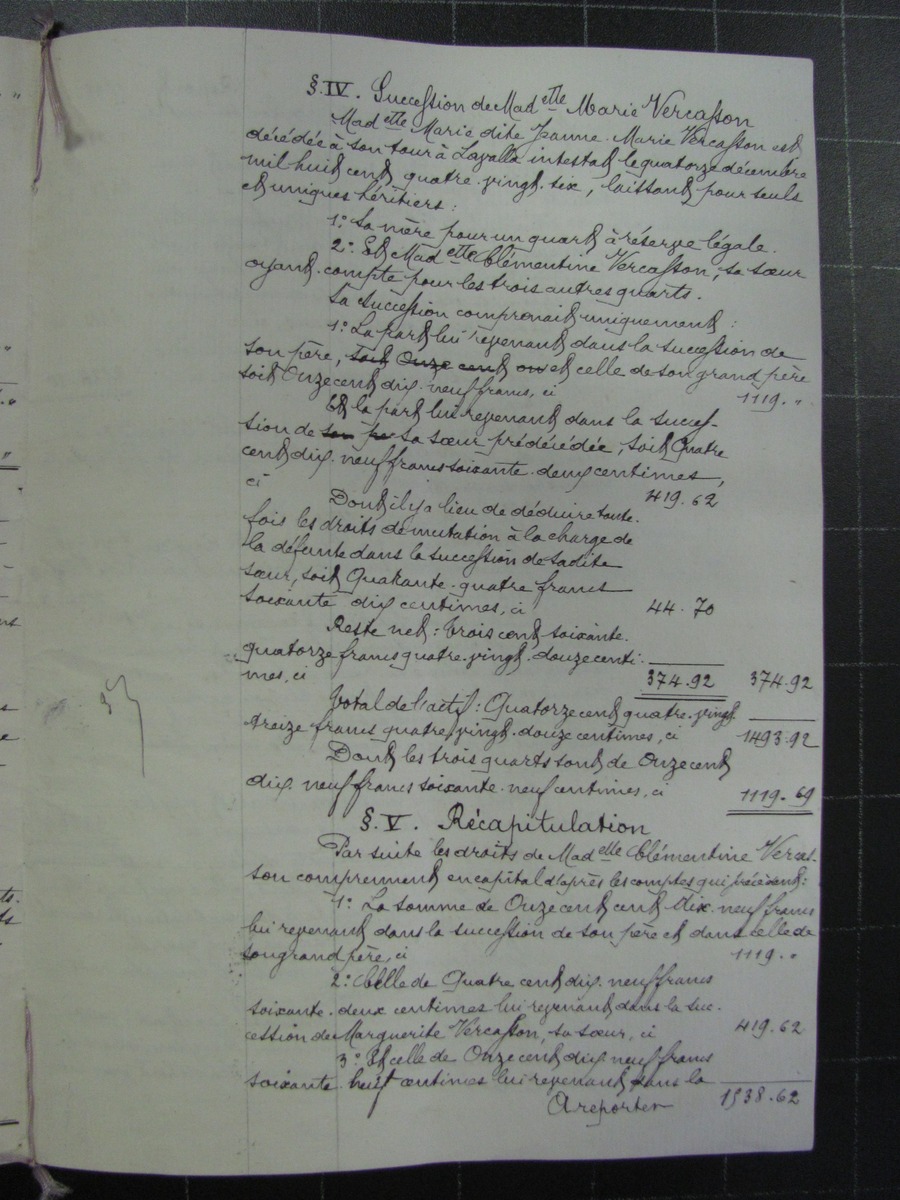 §.IV. Succession de Mad elle Marie Vercasson
Mad elle Marie dite Jeanne-Marie Vercasson est
décédée à son tour à Lavalla intestat le quatorze décembre
mil huit cent quatre-vingt-six, laissant pour seuls
et uniques héritiers :
1° Sa mère pour un quart à réserve légale.
2° Et Mad elle Clémentine Vercasson, sa sœur
oyant-compte pour les trois autres quarts.
Sa succession comprenait uniquement :
1° La part lui revenant dans la succession de
son père, soit Onze cent et celle de son grand père
soit Onze cent dix-neuf francs, ci 1119."
Et la part lui revenant dans la succes-
sion de son pe sa sœur prédécédée, soit Quatre
cent dix-neuf francs soixante-deux centimes,
ci 419.62
Dont il y a lieu de déduire toute-
fois les droits de mutation à la charge de
la défunte dans la succession de sadite
sœur, soit Quarante-quatre francs
soixante-dix centimes, ci 44.70
Reste net : Trois cent soixante-
quatorze francs quatre-vingt-douze centi-
mes, ci 374.92 374.92
Total de l'actif : Quatorze cent quatre-vingt
treize francs quatre-vingt-douze centimes, ci 1493.92
Dont les trois quarts sont de Onze cent
dix-neuf francs soixante-neuf centimes, ci 1119.69
§.V. Récapitulation
Par suite les droits de Mad elle Clémentine Vercas-
son comprennent en capital d'après les comptes qui précèdent :
1° La somme de Onze cent cent dix-neuf francs
lui revenant dans la succession de son père et dans celle de
son grand père, ci 1119."
2° Celle de Quatre cent dix-neuf francs
soixante-deux centimes lui revenant dans la suc-
cession de Marguerite Vercasson, sa sœur, ci 419.62
3° Et celle de Onze cent dix neuf francs
soixante-huit centimes lui revenant dans la
A reporter 1538.62